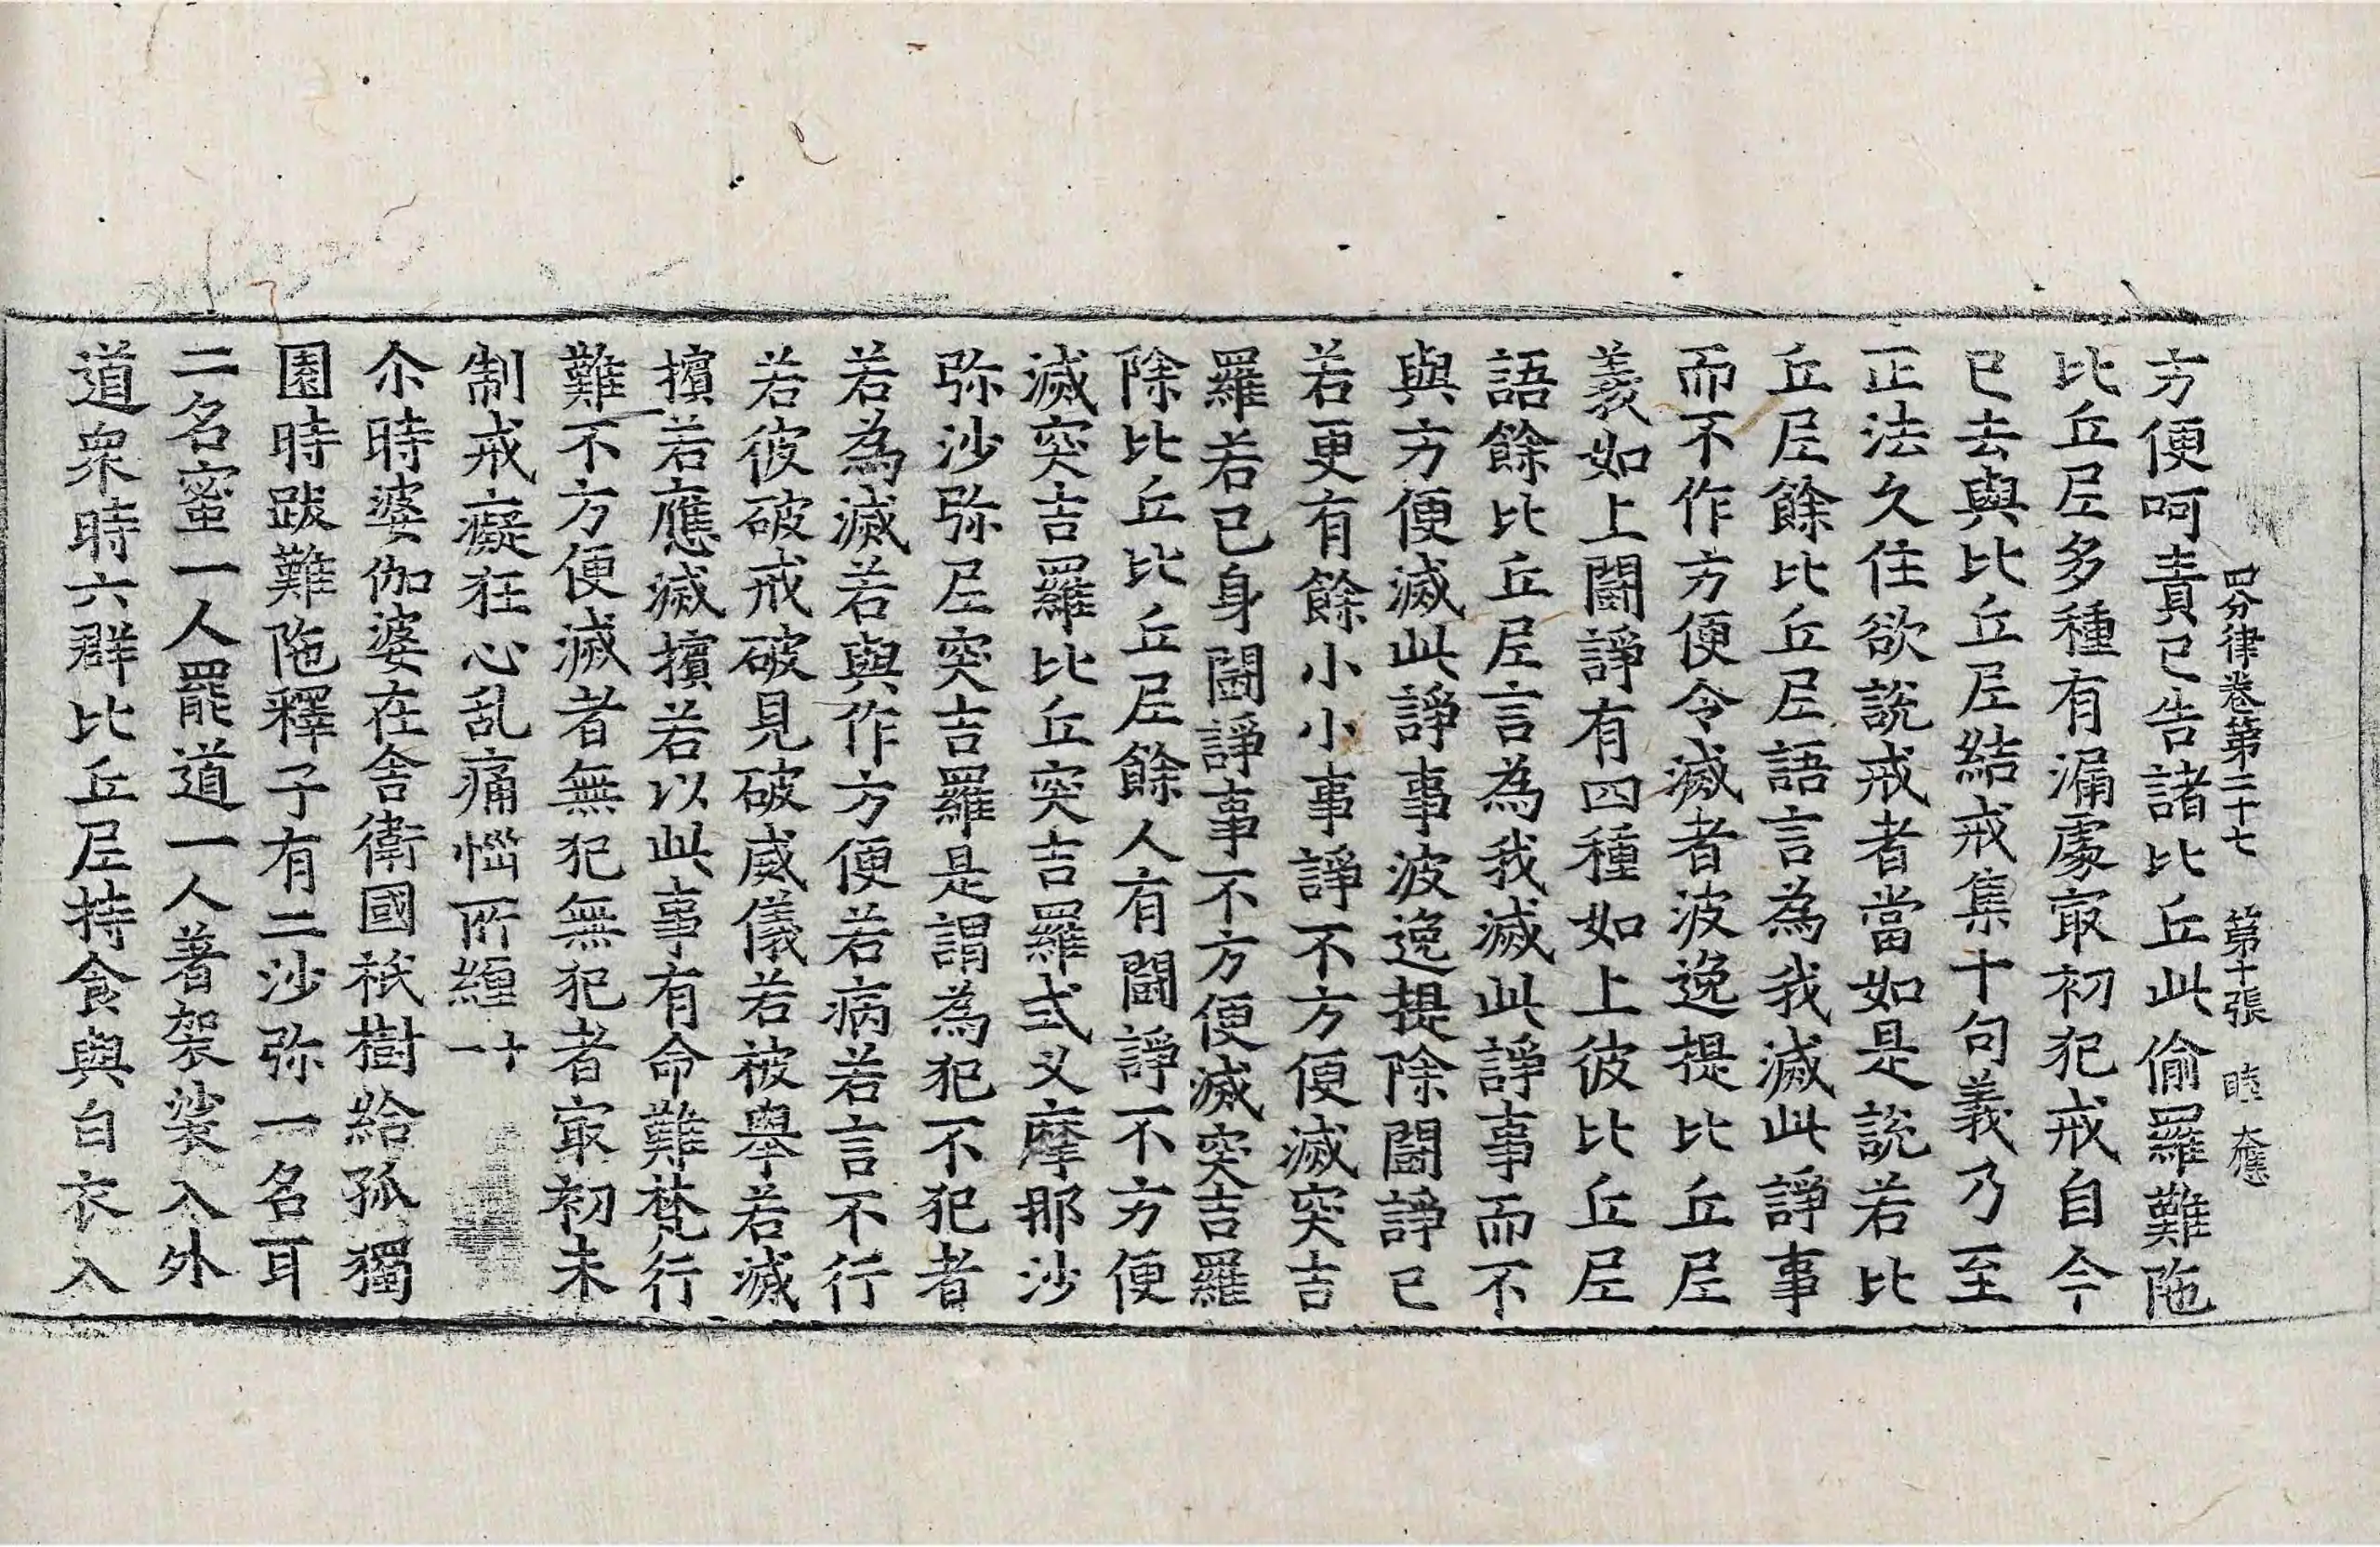 四分律卷第二十七 第十張 睦 大應
方便呵責已告諸比丘此偷羅難陁
比丘尼多種有漏處冣初犯戒自今
已去與比丘尼結戒集十句義乃至
正法久住欲說戒者當如是說若比
丘尼餘比丘尼語言為我滅此諍事
而不作方便令滅者波逸提比丘尼
義如上鬪諍有四種如上彼比丘尼
語餘比丘尼言為我滅此諍事而不
與方便滅此諍事波逸提除鬪諍已
若更有餘小小事諍不方便滅突吉
羅若已身鬪諍事不方便滅突吉羅
除比丘比丘尼餘人有鬪諍不方便
滅突吉羅比丘突吉羅式叉摩那沙
弥沙弥尼突吉羅是謂為犯不犯者
若為滅若與作方便若病若言不行
若彼破戒破見破威儀若被舉若滅
擯若應滅擯若以此事有命難梵行
難不方便滅者無犯無犯者冣初未
制戒癡狂心乱痛惱所纏 十一
尒時婆伽婆在舍衛國祇樹給孤獨
園時跋難陁釋子有二沙弥一名耳
二名蜜一人罷道一人著袈裟入外
道眾時六群比丘尼持食與白衣入